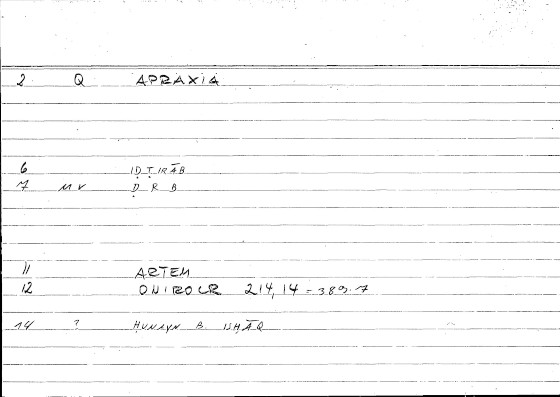 2 Q APRAXIA
6 IḌṬIRĀB
7 MV Ḍ R B
11 ARTEM
12 ONIROCR 214,14 = 389.7
14 ? ḤUNAYN B. ISḤĀQ